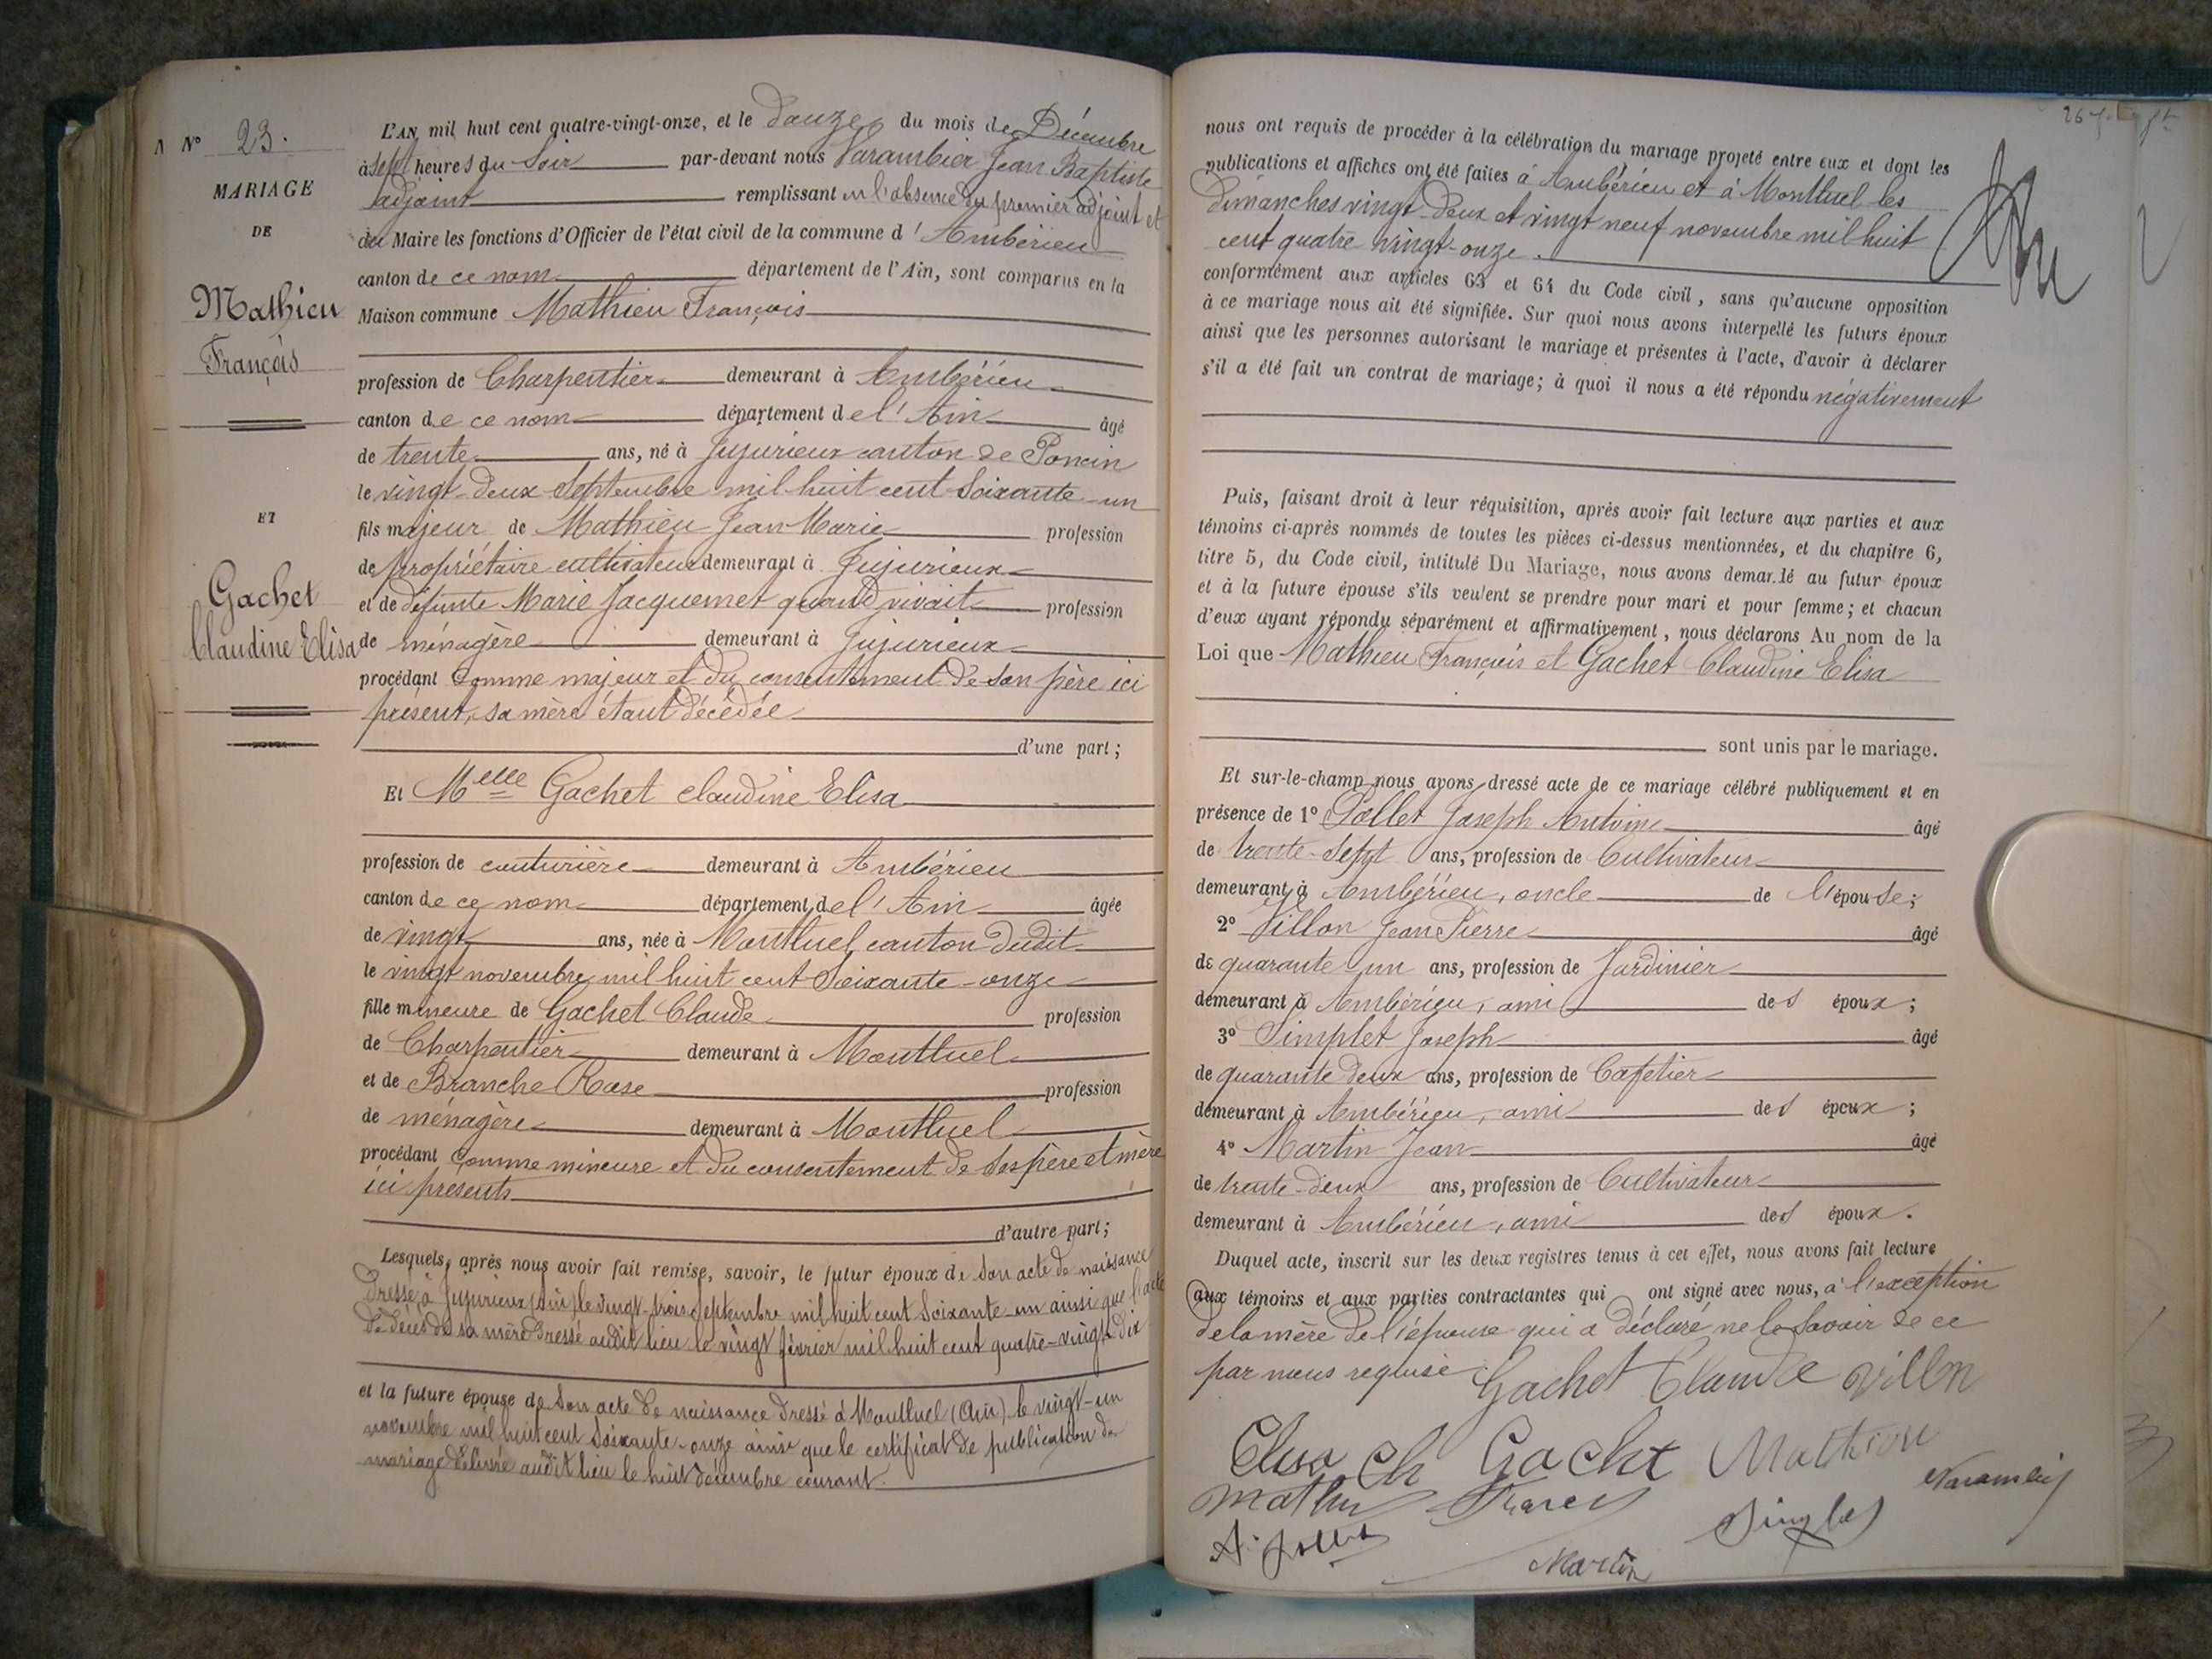 N° 23.
MARIAGE
DE
Mathieu
François
ET
Gachet
Claudine Elisa
L'AN, mil huit cent quatre-vingt-onze, et le Douze du mois de Décembre
à sept heures du Soir par-devant nous Varambier Jean Baptiste
adjoint remplissant en l'absence du premier adjoint et
du Maire les fonctions d'Officier de l'état civil de la commune d'Ambérieu
canton de ce nom département de l'Ain, sont comparus en la
Maison commune Mathieu François
profession de Charpentier demeurant à Ambérieu
canton de ce nom département de l'Ain âgé
de trente ans, né à Jujurieux canton de Poncin
le vingt-deux Septembre mil huit cent Soixante-un
fils majeur de Mathieu Jean Marie profession
de propriétaire cultivateur demeurant à Jujurieux
et de défunte Marie Jacquemet quand vivait profession
de ménagère demeurant à Jujurieux
procédant comme majeur et du consentement de son père ici
présent, sa mère étant décédée
d'une part;
Et Melle Gachet claudine Elisa
profession de couturière demeurant à Ambérieu
canton de ce nom département de l'Ain âgée
de vingt ans, née à Montluel canton dudit
le vingt novembre mil huit cent Soixante-onze
fille mineure de Gachet Claude profession
de Charpentier demeurant à Montluel
et de Branche Rose profession
de ménagère demeurant à Montluel
procédant comme mineure et du consentement de ses père et mère
ici présents
d'autre part;
Lesquels, après nous avoir fait remise, savoir, le futur époux de Son acte de naissance
Dressé à Jujurieux (Ain) le vingt-trois Septembre mil huit cent Soixante-un ainsi que l'acte
De décès de sa mère Dressé audit lieu le vingt février mil huit cent quatre-vingt-dix
et la future épouse de Son acte de naissance Dressé à Montluel (Ain) le vingt-un
novembre mil huit cent Soixante-onze ainsi que le certificat de publication de
mariage Délivré audit lieu le huit décembre courant.
nous ont requis de procéder à la célébration du mariage projeté entre eux et dont les
publications et affiches ont été faites à Ambérieu et à Montluel les
dimanches vingt-Deux et vingt neuf novembre mil huit
cent quatre vingt-onze.
conformément aux articles 63 et 64 du Code civil, sans qu'aucune opposition
à ce mariage nous ait été signifiée. Sur quoi nous avons interpellé les futurs époux
ainsi que les personnes autorisant le mariage et présentes à l'acte, d'avoir à déclarer
s'il a été fait un contrat de mariage; à quoi il nous a été répondu négativement
Puis, faisant droit à leur réquisition, après avoir fait lecture aux parties et aux
témoins ci-après nommés de toutes les pièces ci-dessus mentionnées, et du chapitre 6,
titre 5, du Code civil, intitulé Du Mariage, nous avons demandé au futur époux
et à la future épouse s'ils veulent se prendre pour mari et pour femme; et chacun
d'eux ayant répondu séparément et affirmativement, nous déclarons Au nom de la
Loi que Mathieu François et Gachet Claudine Elisa
sont unis par le mariage.
Et sur-le-champ nous avons dressé acte de ce mariage célébré publiquement et en
présence de 1° Pollet Joseph Antoine âgé
de trente-sept ans, profession de Cultivateur
demeurant à Ambérieu, oncle de l'épouse;
2° Villon Jean Pierre âgé
de quarante un ans, profession de Jardinier
demeurant à Ambérieu, ami des époux;
3° Simplet Joseph âgé
de quarante deux ans, profession de Cafetier
demeurant à Ambérieu, ami des époux;
4° Martin Jean âgé
de trente-deux ans, profession de Cultivateur
demeurant à Ambérieu, ami des époux.
Duquel acte, inscrit sur les deux registres tenus à cet effet, nous avons fait lecture
aux témoins et aux parties contractantes qui ont signé avec nous, à l'exception
de la mère de l'épouse qui a déclaré ne le savoir de ce
par nous requise
Gachet Claude Villon
Elisa Cl Gachet Mathieu
Mathieu Francois Varambier
Simplet
Martin